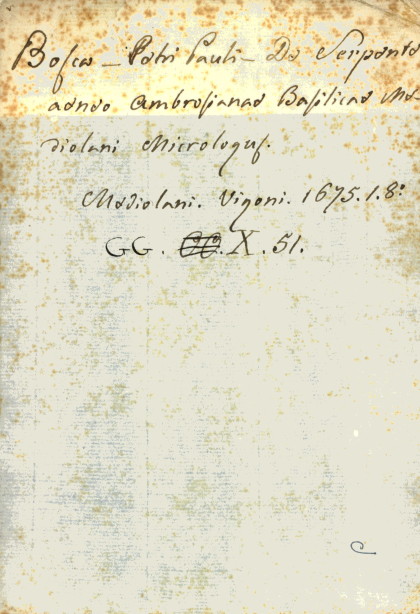 Bosca - Petri Pauli - De Serpente
aeneo Ambrosianae Basilicae Me
diolani Micrologus.
Mediolani. Vigoni. 1675. 1. 8°
GG. X. 51.
C